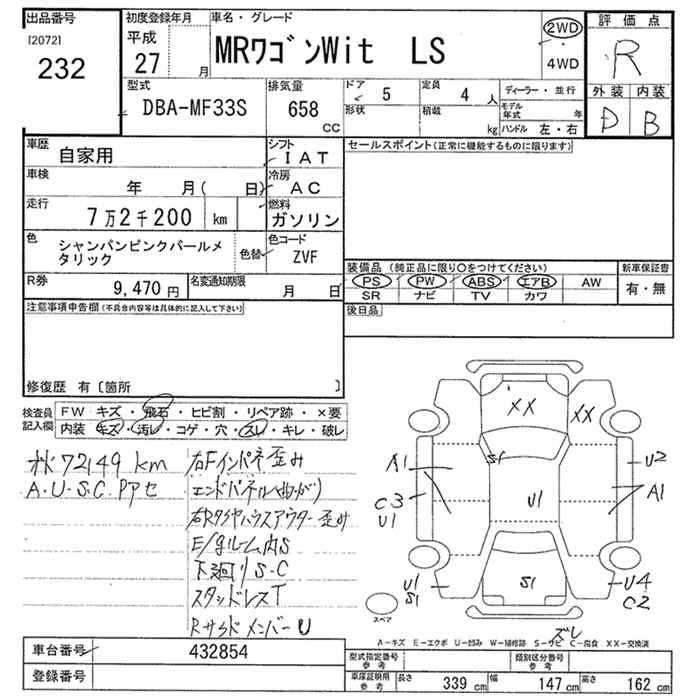 出品番号
[2072]
232
初度登録年月
平成
27 月
車名・グレード
MRワゴンWit LS
2WD
・
4WD
評価点
R
外装 内装
D B
型式
DBA-MF33S
排気量
658
CC
ドア 5
形状
定員 4 人
積載 kg
ディーラー・並行
モデル年式 年
ハンドル 左・右
車歴 自家用
シフト IAT
車検 年 月( 日)
冷房 AC
走行 7万2千200 km
燃料 ガソリン
色 シャンパンピンクパールメタリック
色替
色コード ZVF
R券 9,470 円
名変通知期限 月 日
セールスポイント(正常に機能するものに限ります)
装備品 (純正品に限り〇をつけてください)
PS PW ABS エアB AW
SR ナビ TV カワ
新車保証書
有・無
後日品
注意事項申告欄(不具合内容等は具体的に記入して下さい)
修復歴 有〔箇所 〕
検査員記入欄
FW キズ・飛石・ヒビ割・リペア跡・×要
内装 キズ・汚レ・コゲ・穴・スレ・キレ・破レ
72149 km
A・U・S・C・Pアセ
右Fインパネ歪み
エンドパネル(曲がり)
右Rタイヤハウスアウター歪み
E/gルーム内S
下廻りS・C
スタッドレスT
RサイドメンバーU
XX
XX
S1
A1
U2
A1
C3
U1
U1
U1
S1
S1
U4
C2
スペア
スレ
A-キズ E-エクボ U-凹み W-補修跡 S-サビ C-腐食 XX-交換済
車台番号 432854
登録番号
型式指定番号
参考
類別区分番号
参考
車庫証明用
参考
長さ 339 cm
幅 147 cm
高さ 162 cm